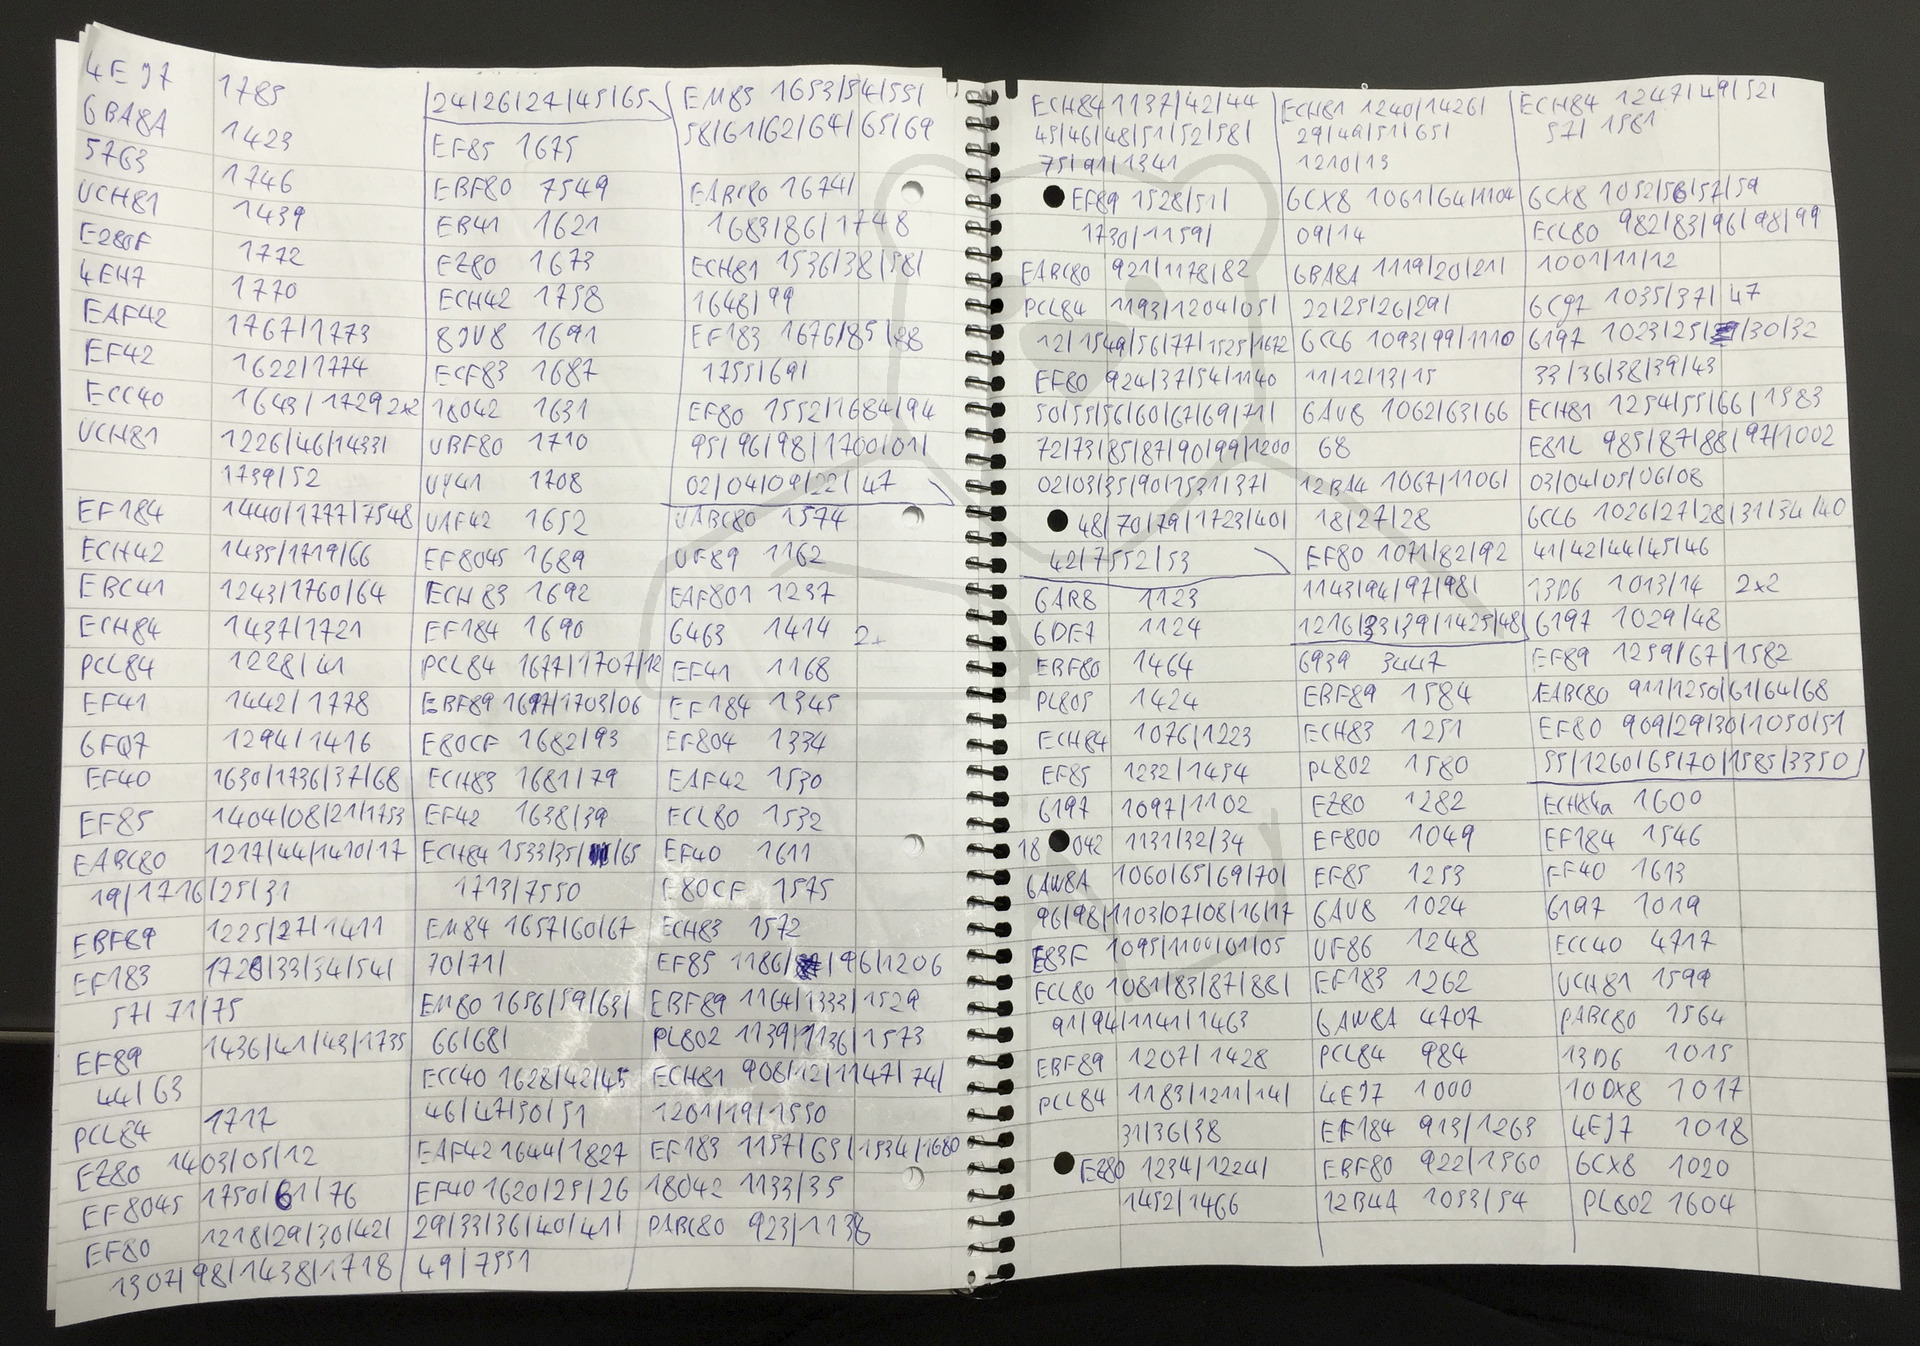 4EJ7 1785
6BA8A 1423
5763 1746
UCH81 1439
E280F 1772
4EH7 1770
EAF42 1767/1773
EF42 1622/1774
ECC40 1643/1729 2x2
UCH81 1226/46/1433/
1739/52
EF184 1440/1777/7548
ECH42 1435/1719/66
EBC41 1243/1760/64
ECH84 1437/1721
PCL84 1228/41
EF41 1442/1778
6FQ7 1294/1416
EF40 1630/1736/37/68
EF85 1404/08/21/1753
EABC80 1217/44/1410/17
19/1716/25/31
EBF89 1225/27/1411
EF183 1728/33/34/54/
57/71/75
EF89 1436/41/43/1735
44/63
PCL84 1717
EZ80 1403/05/12
EF804S 1750/61/76
EF80 1218/29/30/42/
1307/98/1438/1718
24/26/27/45/65
EF85 1675
EBF80 7549
EB41 1621
EZ80 1673
ECH42 1758
8JV8 1691
ECF83 1687
18042 1631
UBF80 1710
UY41 1708
UAF42 1652
EF804S 1689
ECH83 1692
EF184 1690
PCL84 1677/1707/12
EBF89 1697/1703/06
E80CF 1682/93
ECH83 1681/79
EF42 1638/39
ECH84 1533/35/ /65
1713/7550
EM84 1657/60/67
70/71/
EM80 1656/59/63/
66/68/
ECC40 1628/42/45
46/47/50/51
EAF42 1644/1827
EF40 1620/25/26
29/33/36/40/41/
49/7551
EM85 1653/54/55/
58/61/62/64/65/69
EABC80 1674/
1683/86/1748
ECH81 1536/38/58/
1648/99
EF183 1676/85/88
1755/69/
EF80 1552/1684/94
95/96/98/1700/01/
02/04/09/22/47
UABC80 1574
UF89 1162
EAF801 1237
6463 1414 2x
EF41 1168
EF184 1345
EF804 1334
EAF42 1530
ECL80 1532
EF40 1611
E80CF 1575
ECH83 1572
EF85 1186/ /96/1206
EBF89 1164/1333/1529
PL802 1139/1136/1573
ECH81 908/12/1147/74/
1201/19/1550
EF183 1157/65/1534/1680
18042 1133/35
PABC80 923/1138
ECH84 1137/42/44
45/46/48/51/52/58/
75/91/1341
EF89 1528/51/
1730/1159/
EABC80 921/1178/82
PCL84 1193/1204/05/
12/1549/56/77/1525/1672
EF80 924/37/54/1140
50/55/56/60/67/69/71/
72/73/85/87/90/99/1200
02/03/35/90/1531/37/
48/70/79/1723/40/
42/7552/53
6AR8 1123
6DE7 1124
EBF80 1464
PL805 1424
ECH84 1076/1223
EF85 1232/1454
6197 1097/1102
18042 1131/32/34
6AW8A 1060/65/69/70/
96/98/1103/07/08/16/17
E83F 1095/1100/01/05
ECL80 1081/83/87/88/
91/94/1141/1463
EBF89 1207/1428
PCL84 1183/1211/14/
31/36/38
EZ80 1234/1224/
1452/1466
ECH81 1240/1426/
29/49/51/65/
1210/13
6CX8 1061/64/1104
09/14
6BA8A 1119/20/21/
22/25/26/29/
6CL6 1093/99/1110
11/12/13/15
6AU8 1062/63/66
68
12BA4 1067/1106/
18/27/28
EF80 1071/82/92
1143/94/97/98/
1216/33/39/1425/48/
6939 3447
EBF89 1584
ECH83 1251
PL802 1580
EZ80 1282
EF800 1049
EF85 1253
6AU8 1024
UF86 1248
EF183 1262
6AW8A 4707
PCL84 984
4EJ7 1000
EF184 913/1263
EBF80 922/1560
12B4A 1053/54
ECH84 1247/49/52/
57/1581
6CX8 1052/56/57/59
ECL80 982/83/96/98/99
1001/11/12
6CG7 1035/37/47
6197 1023/25/ /30/32
33/36/38/39/43
ECH81 1254/55/66/1583
E81L 985/87/88/97/1002
03/04/05/06/08
6CL6 1026/27/28/31/34/40
41/42/44/45/46
13D6 1013/14 2x2
6197 1029/48
EF89 1259/67/1582
EABC80 911/1250/61/64/68
EF80 909/29/30/1050/51
55/1260/65/70/1585/3350/
ECH84a 1600
EF184 1546
EF40 1613
6197 1019
ECC40 4717
UCH81 1599
PABC80 1564
13D6 1015
10DX8 1017
4EJ7 1018
6CX8 1020
PL802 1604